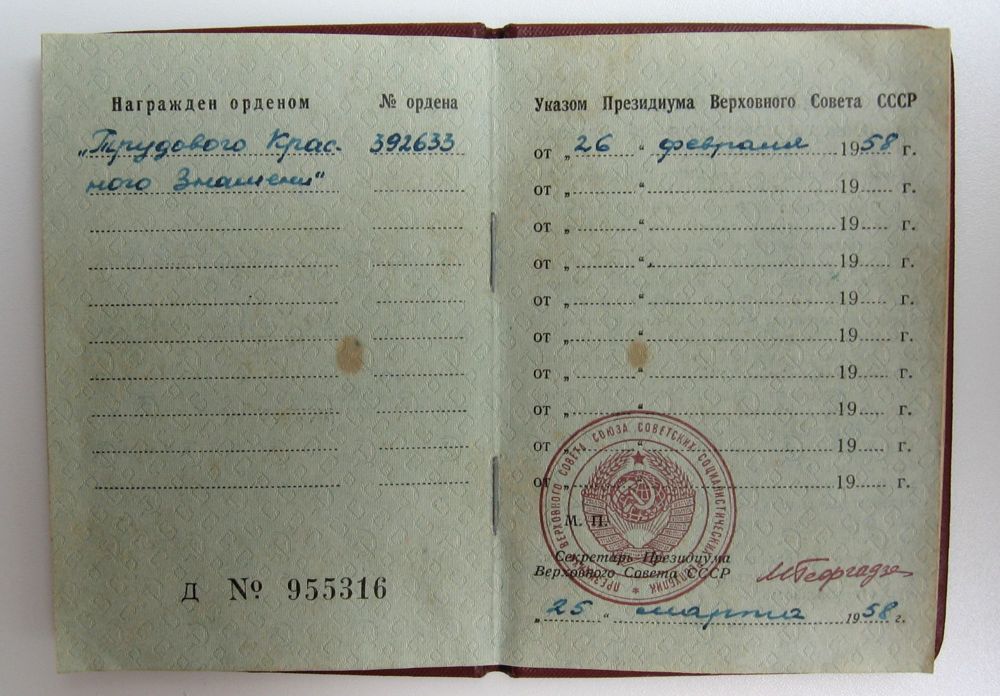 Награжден орденом № ордена
„Трудового Крас- 392633
ного Знамени“
Д № 955316
Указом Президиума Верховного Совета СССР
от „26“ февраля 1958 г.
от „ “ 19 г.
от „ “ 19 г.
от „ “ 19 г.
от „ “ 19 г.
от „ “ 19 г.
от „ “ 19 г.
от „ “ 19 г.
от „ “ 19 г.
от „ “ 19 г.
ПРЕЗИДИУМ ВЕРХОВНОГО СОВЕТА СОЮЗА СОВЕТСКИХ СОЦИАЛИСТИЧЕСКИХ РЕСПУБЛИК
М. П.
Секретарь Президиума
Верховного Совета СССР МГеоргадзе
„25“ марта 1958 г.